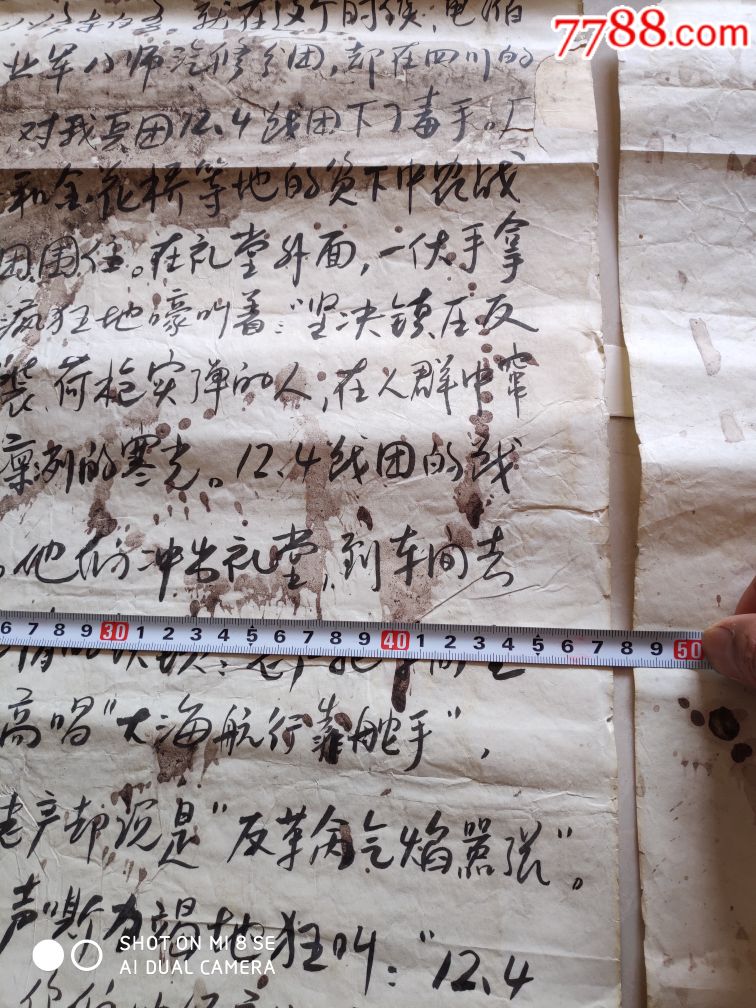 7788.com
就在这个时候,
业军八师汽修分团,却在四川的
对我兵团12.4战团下了毒手。厂
和金花桥等地的贫下中农战
团围住。在礼堂外面,一伙手拿
疯狂地嚎叫着:"坚决镇压反
装、荷枪实弹的人,在人群中窜
凛冽的寒光。12.4战团的战
。他们冲出礼堂,到车间去
6 7 8 9 30 1 2 3 4 5 6 7 8 9 40 1 2 3 4 5 6 7 8 9 50
高唱"大海航行靠舵手",
产却说是"反革命气焰嚣张"。
声嘶力竭地狂叫:"12.4
SHOT ON MI 8 SE
AI DUAL CAMERA